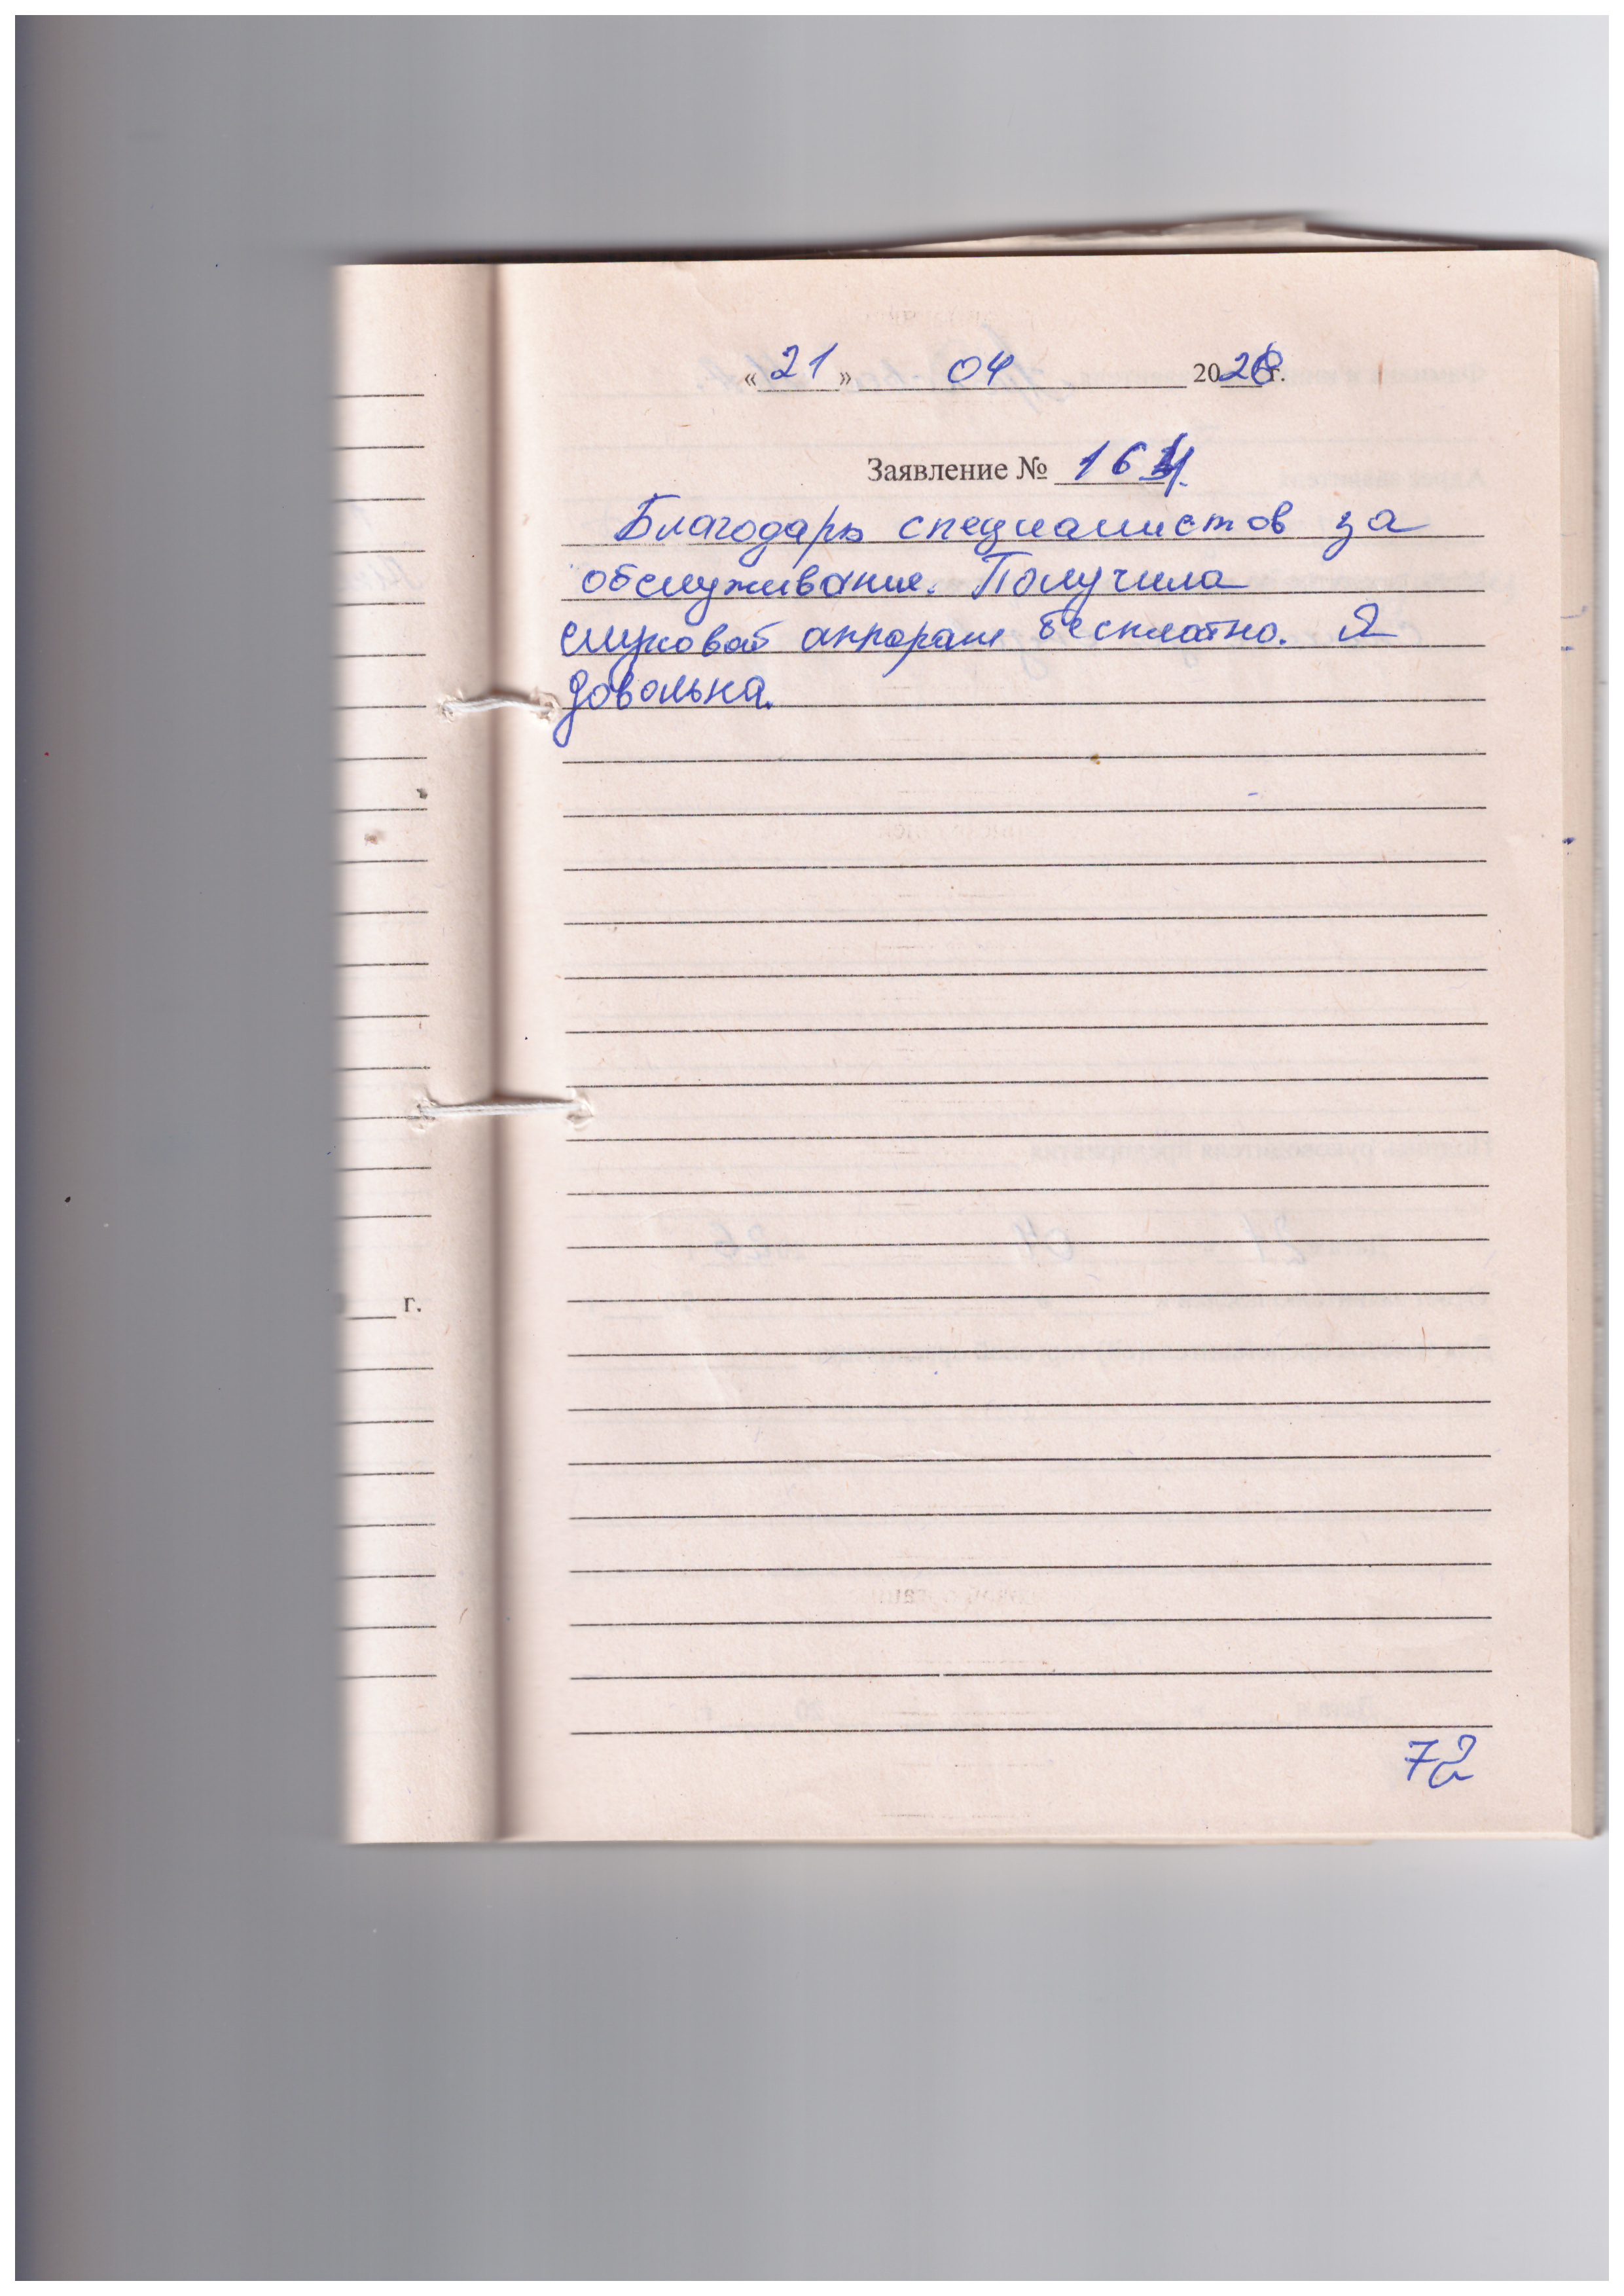 « 21 » 04 2026 г.
Заявление № 164.
Благодарь специалистов за
обслуживание. Получила
слуховой аппарат бесплатно. Я
довольна.
г.
72